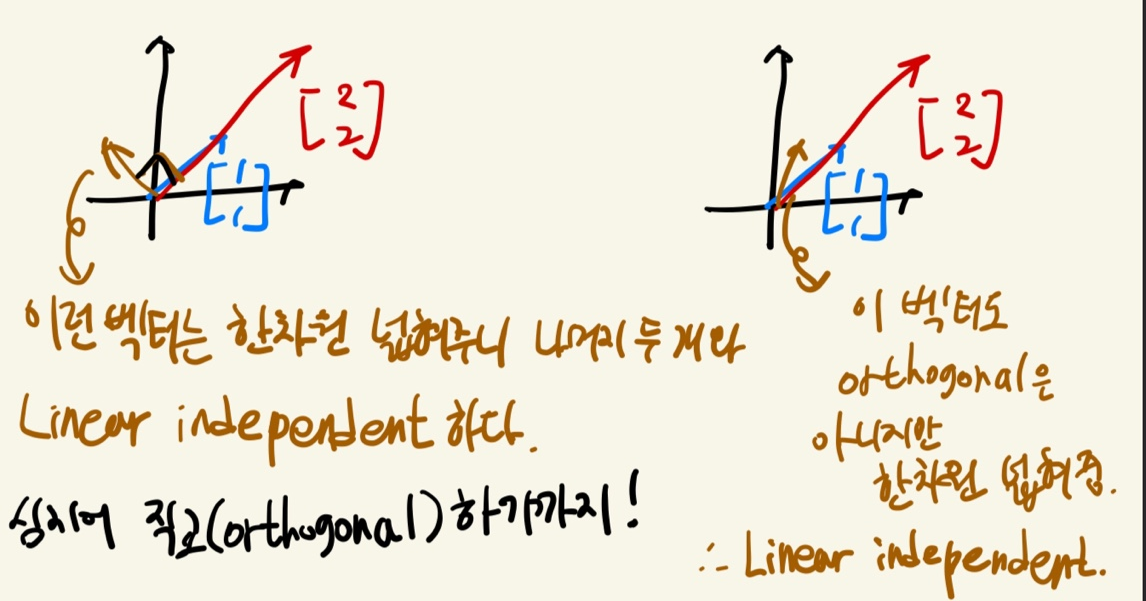 [ 2
2 ]
[ 1
1 ]
이런 벡터는 한차원 넓혀주니 나머지 두개와
Linear independent 하다.
심지어 직교(orthogonal)하기까지!
[ 2
2 ]
[ 1
1 ]
이 벡터도
orthogonal은
아니지만
한차원 넓혀줌.
∴ Linear independent.